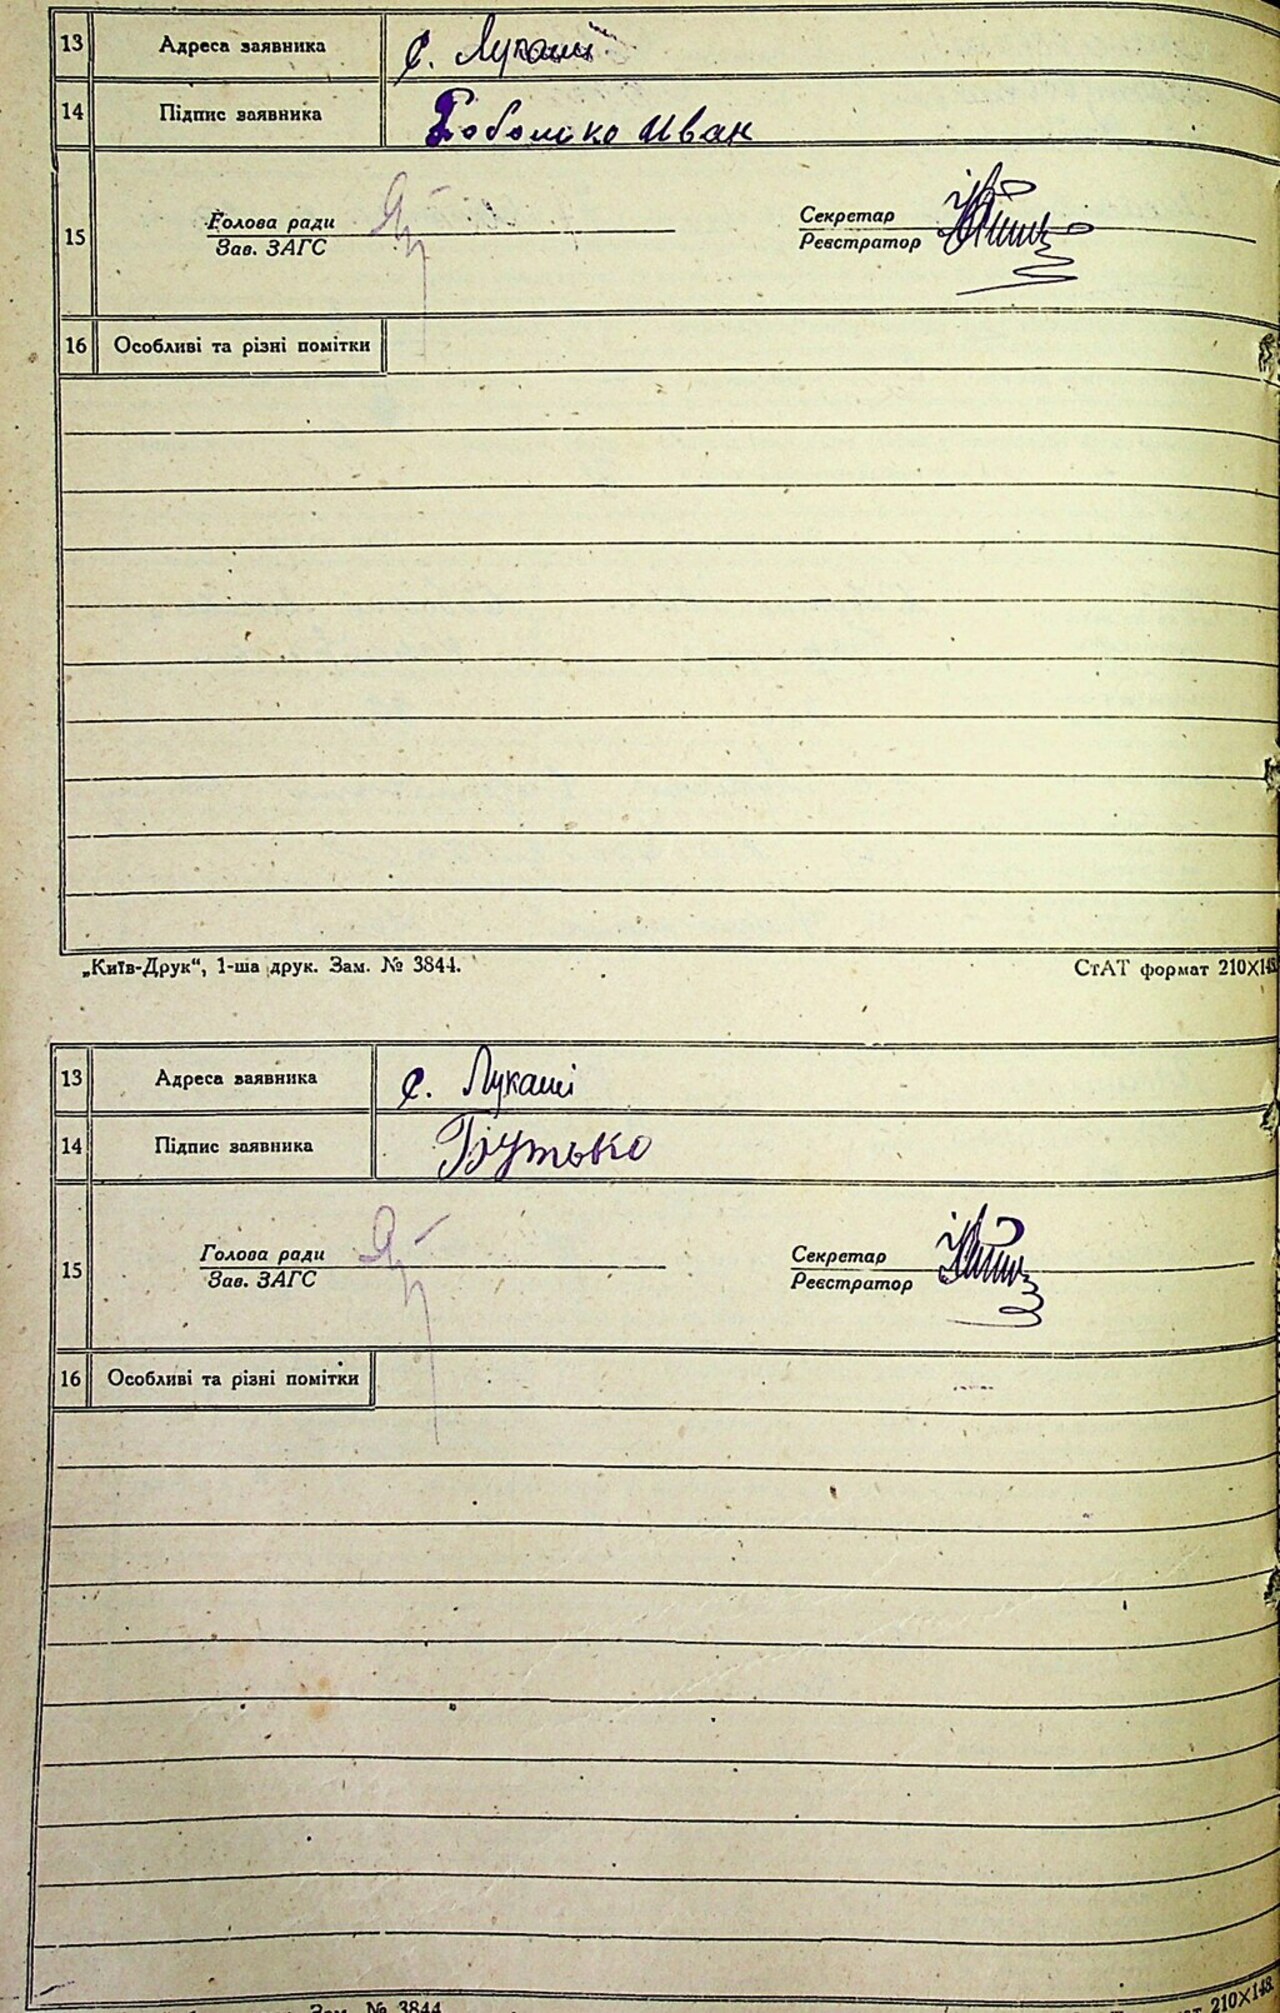 13 Адреса заявника с. Лукаші
14 Підпис заявника Иван
Голова ради Секретар
15
Зав. ЗАГС Реєстратор
16 Особливі та різні помітки
„Київ-Друк“, 1-ша друк. Зам. № 3844. СтАТ формат 210X148
13 Адреса заявника с. Лукаші
14 Підпис заявника Бутько
Голова ради Секретар
15
Зав. ЗАГС Реєстратор
16 Особливі та різні помітки
Зам. № 3844 210X148